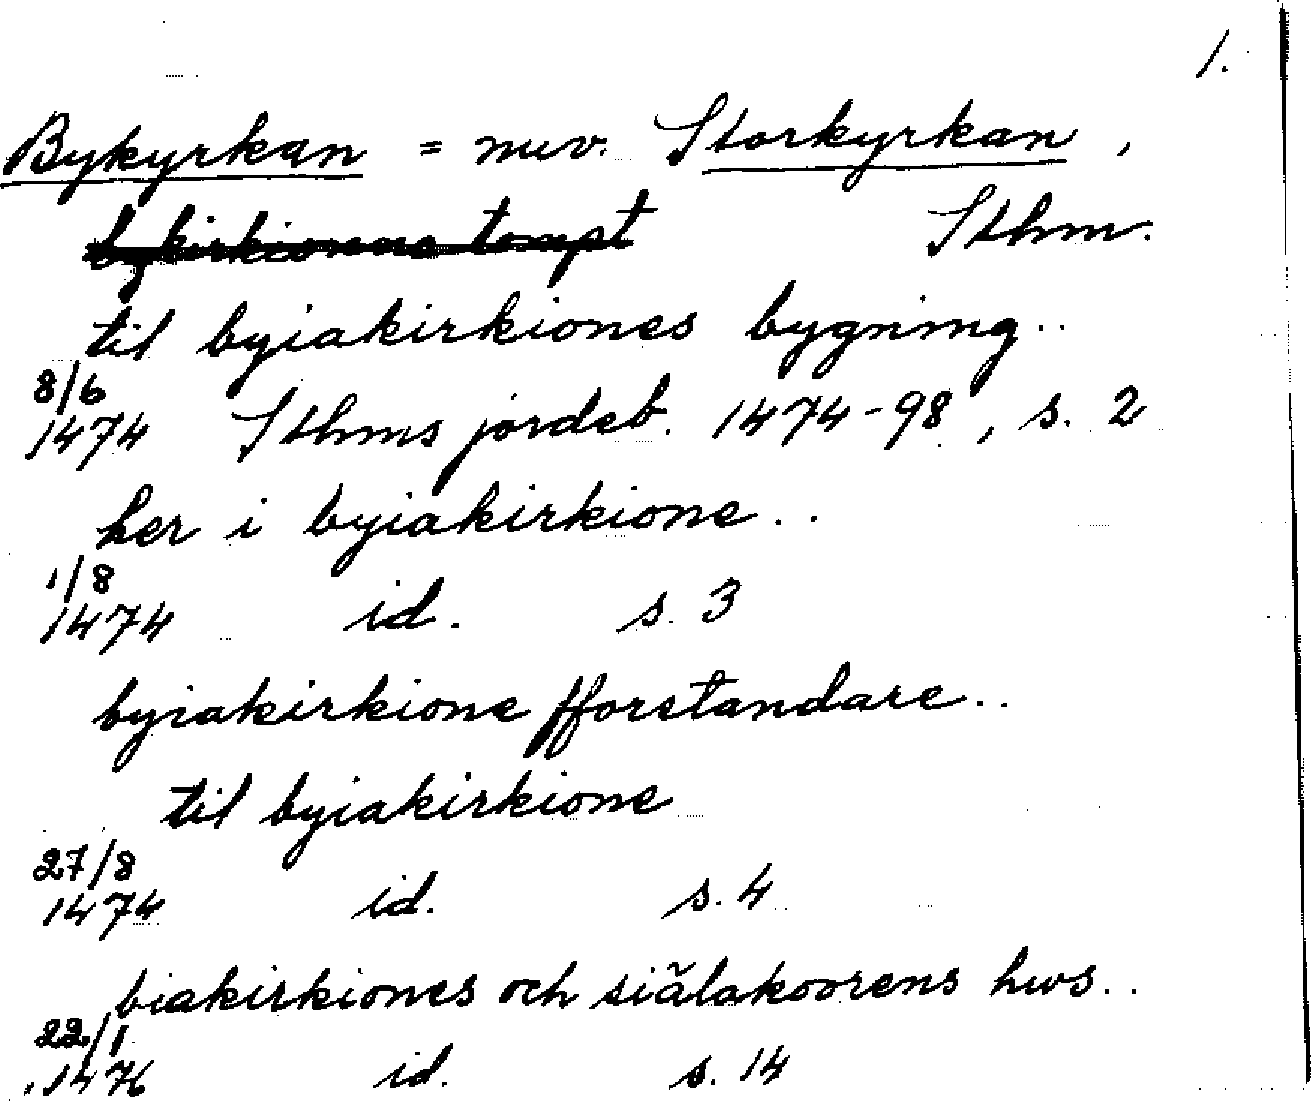 1.
Bykyrkan = nuv. Storkyrkan,
bykirkionne tompt Sthm.
til byiakirkiones bygning..
8/6
1474 Sthms jordeb. 1474-98, s. 2
her i byiakirkione..
1/8
1474 id. s. 3
byiakirkione fforstandare..
til byiakirkione
27/8
1474 id. s. 4
biakirkiones och siälakoorens hws..
22/1
1476 id. s. 14